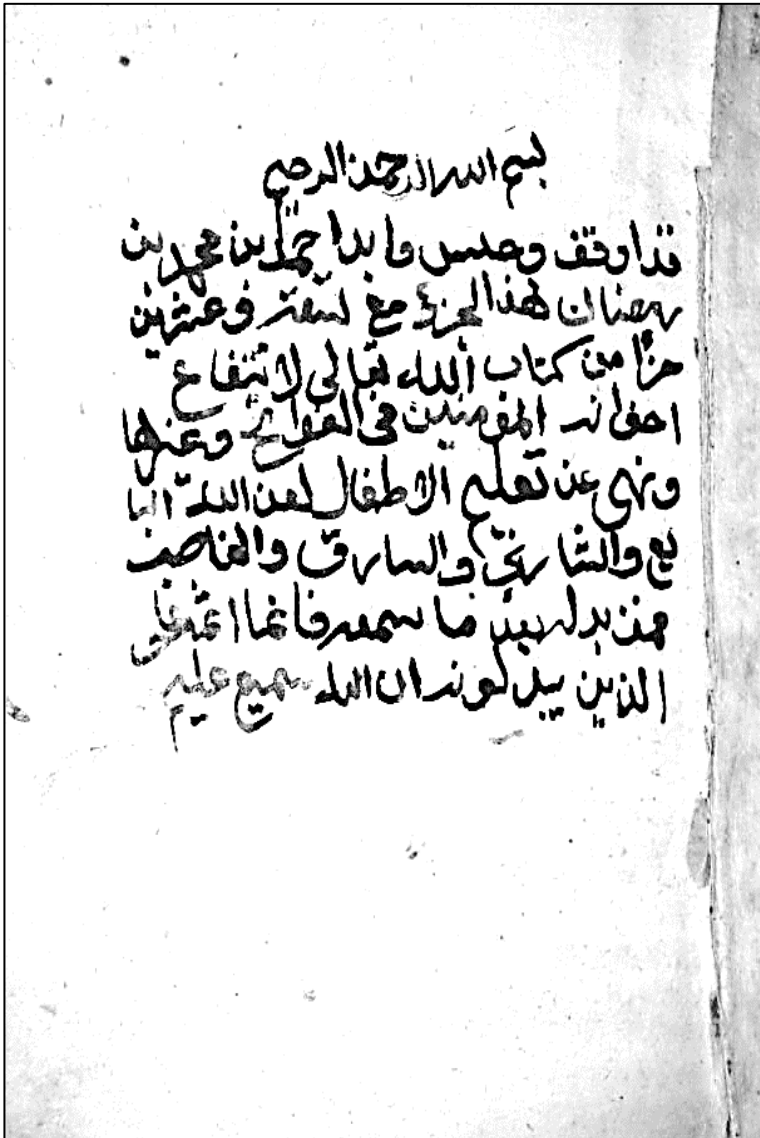 بسم الله الرحمن الرحيم
قد اوقف وحبس وابدا حمد بن محمد بن
رمضان لهذا الجزء مع تسعة وعشرين
جزأ من كتاب الله تعالى لانتفاع
اخوانه المؤمنين في الفواتح وغيرها
ونهى عن تعليم الاطفال لعن الله البا
يع والشاري والسارق والغاصب
فمن بدله بعد ما سمعه فانما اثمه على
الذين يبدلونه ان الله سميع عليم